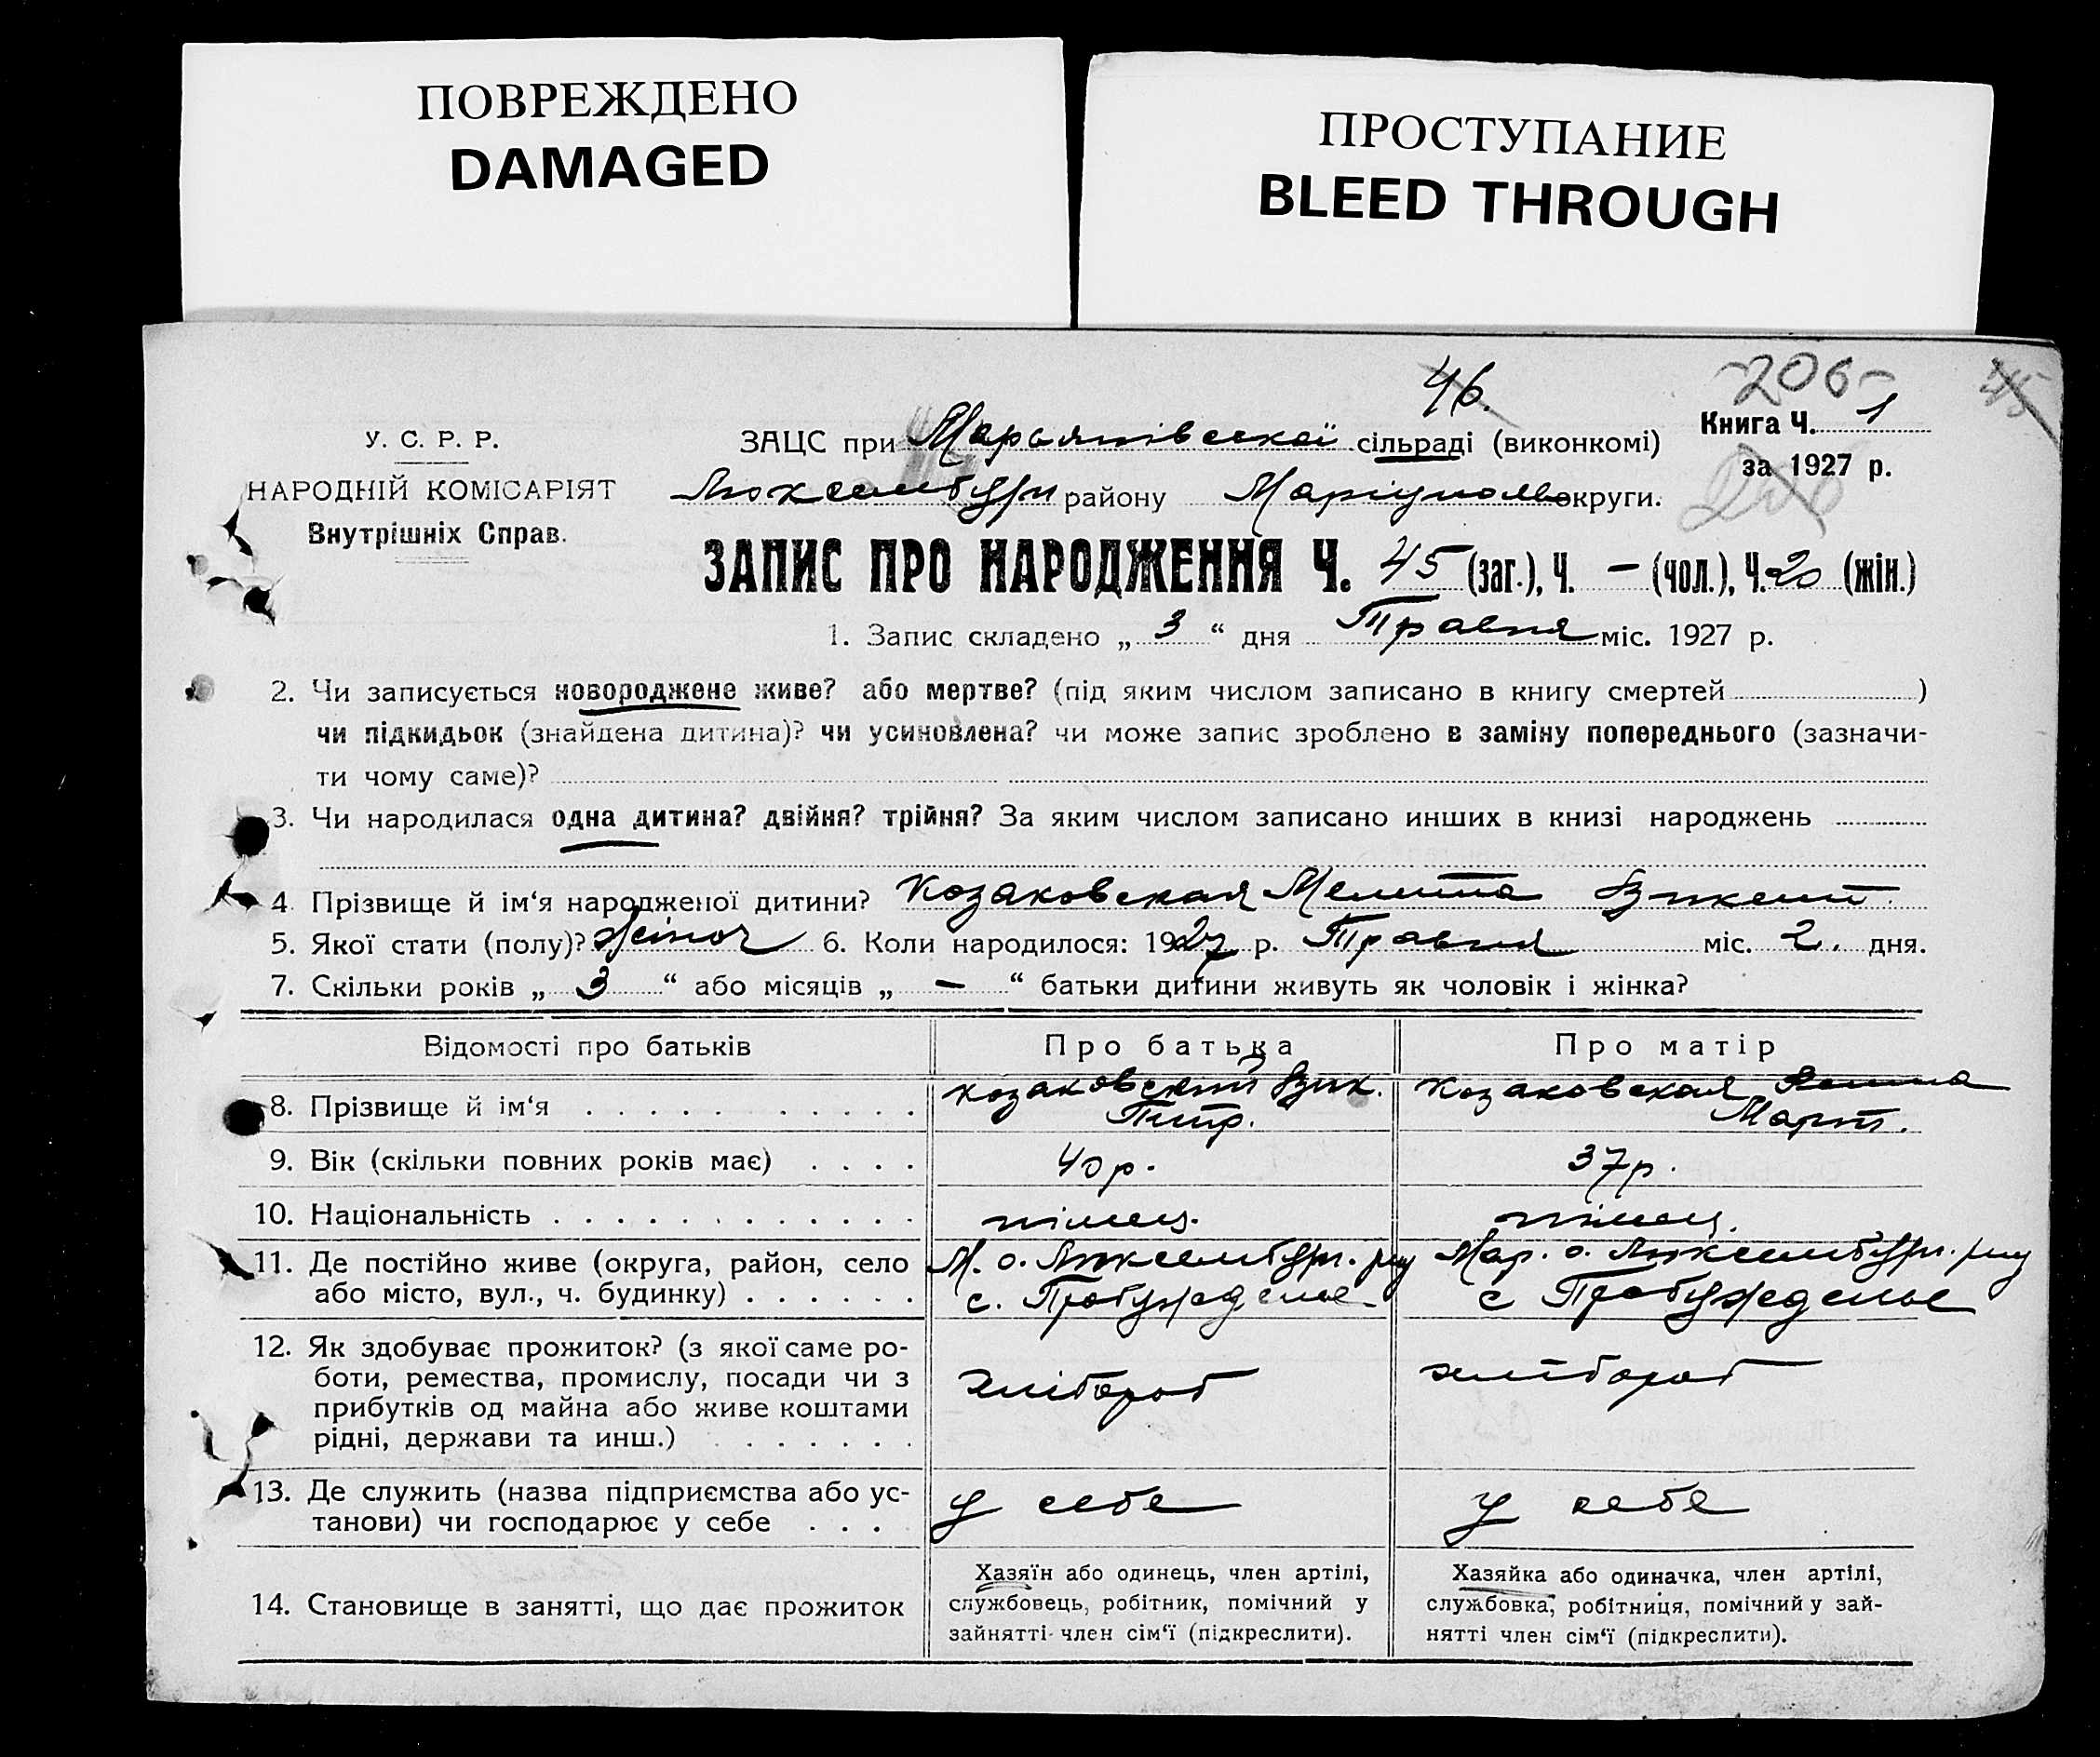 ПОВРЕЖДЕНО
DAMAGED
ПРОСТУПАНИЕ
BLEED THROUGH
46.
-206-
45
У. С. Р. Р.
НАРОДНІЙ КОМІСАРІЯТ
Внутрішніх Справ.
ЗАЦС при Марьянівської сільраді (виконкомі)
Люксембург району Маріупольс округи.
Книга Ч. 1
за 1927 р.
206
ЗАПИС ПРО НАРОДЖЕННЯ Ч. 45 (заг.), Ч. — (чол.), Ч. 20 (жін.)
1. Запис складено „ 3 “ дня Травня міс. 1927 р.
2. Чи записується новороджене живе? або мертве? (під яким числом записано в книгу смертей )
чи підкидьок (знайдена дитина)? чи усиновлена? чи може запис зроблено в заміну попереднього (зазначи-
ти чому саме)?
3. Чи народилася одна дитина? двійня? трійня? За яким числом записано инших в книзі народжень
4. Прізвище й ім‘я народженої дитини? Козаковская Мелитта Викент.
5. Якої стати (полу)? жіноч 6. Коли народилося: 1927 р. Травня міс. 2. дня.
7. Скільки років „ 3 “ або місяців „ — “ батьки дитини живуть як чоловік і жінка?
Відомості про батьків Про батька Про матір
8. Прізвище й ім‘я Козаковский Вик. Козаковская
Петр. Март.
9. Вік (скільки повних років має) 40 р. 37 р.
10. Національність німец. німец.
11. Де постійно живе (округа, район, село М. о. Люксембург. рну Мар. о. Люксембург. рну
або місто, вул., ч. будинку) с. Пробужденье с Пробужденье
12. Як здобуває прожиток? (з якої саме ро-
боти, ремества, промислу, посади чи з хлібороб хлібороб
прибутків од майна або живе коштами
рідні, держави та инш.)
13. Де служить (назва підприємства або ус- у себе у себе
танови) чи господарює у себе
14. Становище в занятті, що дає прожиток
Хазяїн або одинець, член артілі,
службовець, робітник, помічний у
зайнятті член сім‘ї (підкреслити).
Хазяйка або одиначка, член артілі,
службовка, робітниця, помічний у зай-
нятті член сім‘ї (підкреслити).